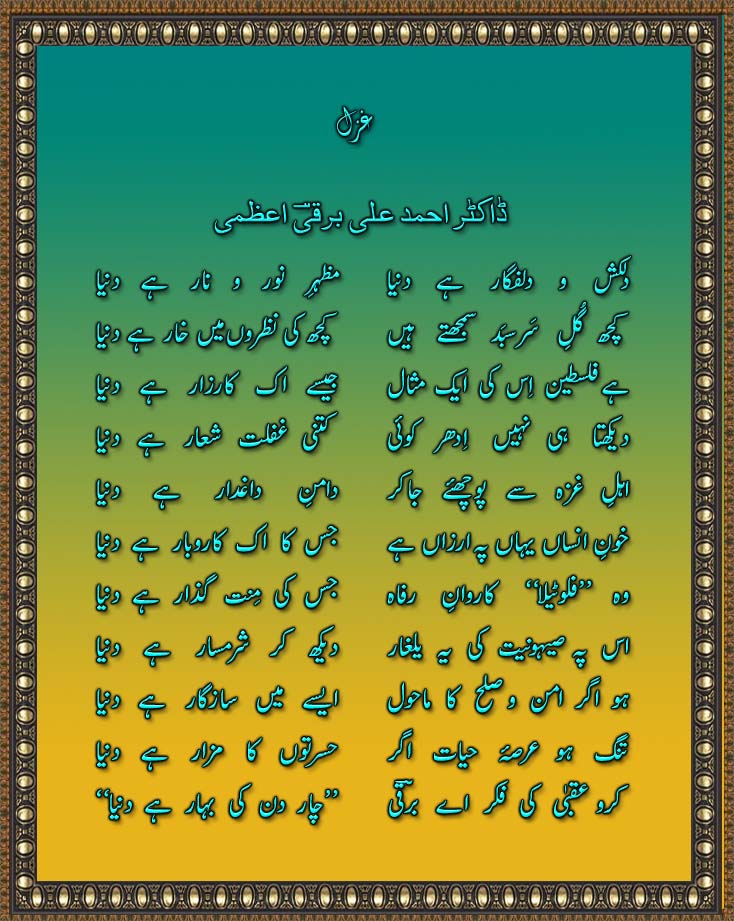 غزل
ڈاکٹر احمد علی برقیؔ اعظمی
دلکش و دلفگار ہے دنیا مظہرِ نور و نار ہے دنیا
کچھ گُلِ سَرسبَد سمجھتے ہیں کچھ کی نظروں میں خار ہے دنیا
ہے فلسطین اِس کی ایک مثال جیسے اک کارزار ہے دنیا
دیکھتا ہی نہیں اِدھر کوئی کتنی غفلت شعار ہے دنیا
اہلِ غزہ سے پوچھئے جاکر دامنِ داغدار ہے دنیا
خونِ انساں یہاں پہ ارزاں ہے جس کا اک کاروبار ہے دنیا
وہ ’’فلوٹیلا‘‘ کاروانِ رفاہ جس کی مِنت گذار ہے دنیا
اس پہ صیہونیت کی یہ یلغار دیکھ کر شرمسار ہے دنیا
ہو اگر امن و صلح کا ماحول ایسے میں سازگار ہے دنیا
تنگ ہو عرصۂ حیات اگر حسرتوں کا مزار ہے دنیا
کرو عقبیٰ کی فکر اے برقیؔ ’’چار دن کی بہار ہے دنیا‘‘